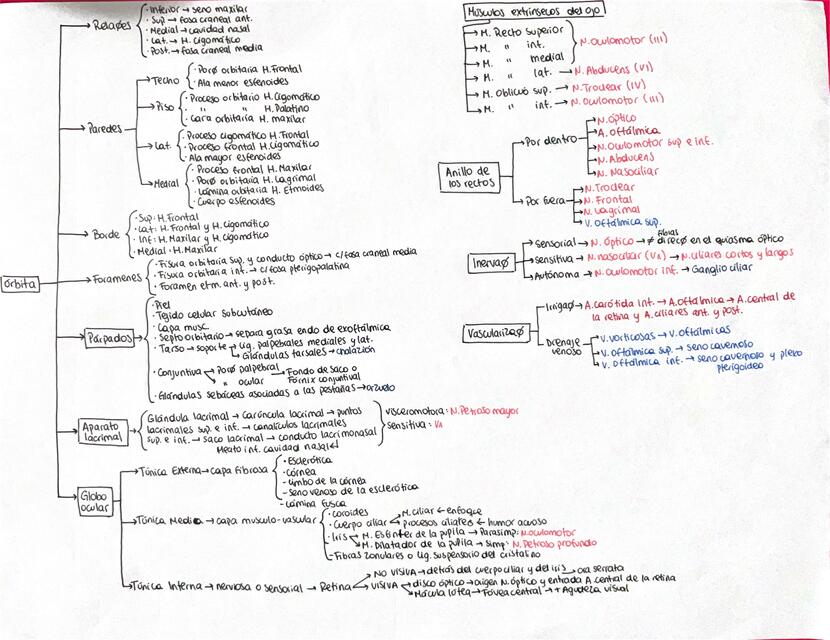 Órbita
Relaçøes
· Inferior → seno maxilar
· Sup → fosa craneal ant.
· Medial → cavidad nasal
· Lat. → H. Cigomático
· Post. → fosa craneal media
Paredes
Techo
· Porø orbitaria H. Frontal
· Ala menor esfenoides
Piso
· Proceso orbitario H. Cigomático
· " " H. Palatino
· Cara orbitaria H. maxilar
Lat.
· Proceso cigomático H. Frontal
· Proceso frontal H. Cigomático
· Ala mayor esfenoides
Medial
· Proceso frontal H. Maxilar
· Porø orbitaria H. Lagrimal
· Lámina orbitaria H. Etmoides
· Cuerpo esfenoides
Borde
· Sup: H. Frontal
· Lat: H. Frontal y H. Cigomático
· Inf: H. Maxilar y H. Cigomático
· Medial: H. Maxilar
Foramenes
· Fisura orbitaria sup. y conducto óptico → c/fosa craneal media
· Fisura orbitaria inf. → c/fosa pterigopalatina
· Foramen etm. ant. y post.
Párpados
· Piel
· Tejido celular subcutáneo
· Capa musc.
· Septo orbitario → separa grasa endo de exoftálmica
· Tarso → soporte → Lig. palpebrales mediales y lat.
Glándulas tarsales → chalazión
· Conjuntiva → Porø palpebral → Fondo de saco o
" ocular Fórnix conjuntival
· Glándulas sebáceas asociadas a las pestañas → orzuelo
Aparato
lacrimal
Glándula lacrimal → carúncula lacrimal → puntos
lacrimales sup. e inf. → canalículos lacrimales
sup. e inf. → saco lacrimal → conducto lacrimonasal
Meato inf. cavidad nasal
visceromotora: N. Petroso mayor
sensitiva: V₁
Globo
ocular
Túnica Externa → capa fibrosa
· Esclerótica
· Córnea
· Limbo de la córnea
· Seno venoso de la esclerótica
- Lámina fusca
Túnica Media → capa musculo-vascular
· Coroides
· Cuerpo ciliar → M. ciliar ← enfoque
procesos ciliares ← humor acuoso
· Iris → M. Esfínter de la pupila → Parasimp: N. oculomotor
M. Dilatador de la pupila → Simp: N. Petroso profundo
- Fibras zonulares o Lig. suspensorio del cristalino
Túnica Interna → nerviosa o sensorial → Retina
NO VISIVA → detrás del cuerpo ciliar y del iris → ora serrata
VISIVA → disco óptico → origen N. óptico y entrada A. central de la retina
Mácula lútea → Fóvea central → + Agudeza visual
Músculos extrínsecos del ojo
M. Recto Superior
M. " inf.
M. " medial
N. Oculomotor (III)
M. " lat. → N. Abducens (VI)
M. Oblicuo sup. → N. Troclear (IV)
M. " inf. → N. Oculomotor (III)
Anillo de
los rectos
Por dentro
N. Óptico
A. oftálmica
N. Oculomotor sup e inf.
N. Abducens
N. Nasociliar
Por fuera
N. Troclear
N. Frontal
N. Lagrimal
V. oftálmica sup.
Inervaø
Sensorial → N. Óptico → ≠ direcø en el quiasma óptico
fibras
Sensitiva → N. nasociliar (V₁) → N. ciliares cortos y largos
Autónoma → N. oculomotor inf. → Ganglio ciliar
Vascularizaø
Irrigaø → A. carótida int. → A. oftálmica → A. central de
la retina y A. ciliares ant. y post.
Drenaje
venoso
V. vorticosas → V. oftálmicas
V. oftálmica sup. → seno cavernoso
V. oftálmica inf. → seno cavernoso y plexo
pterigoideo